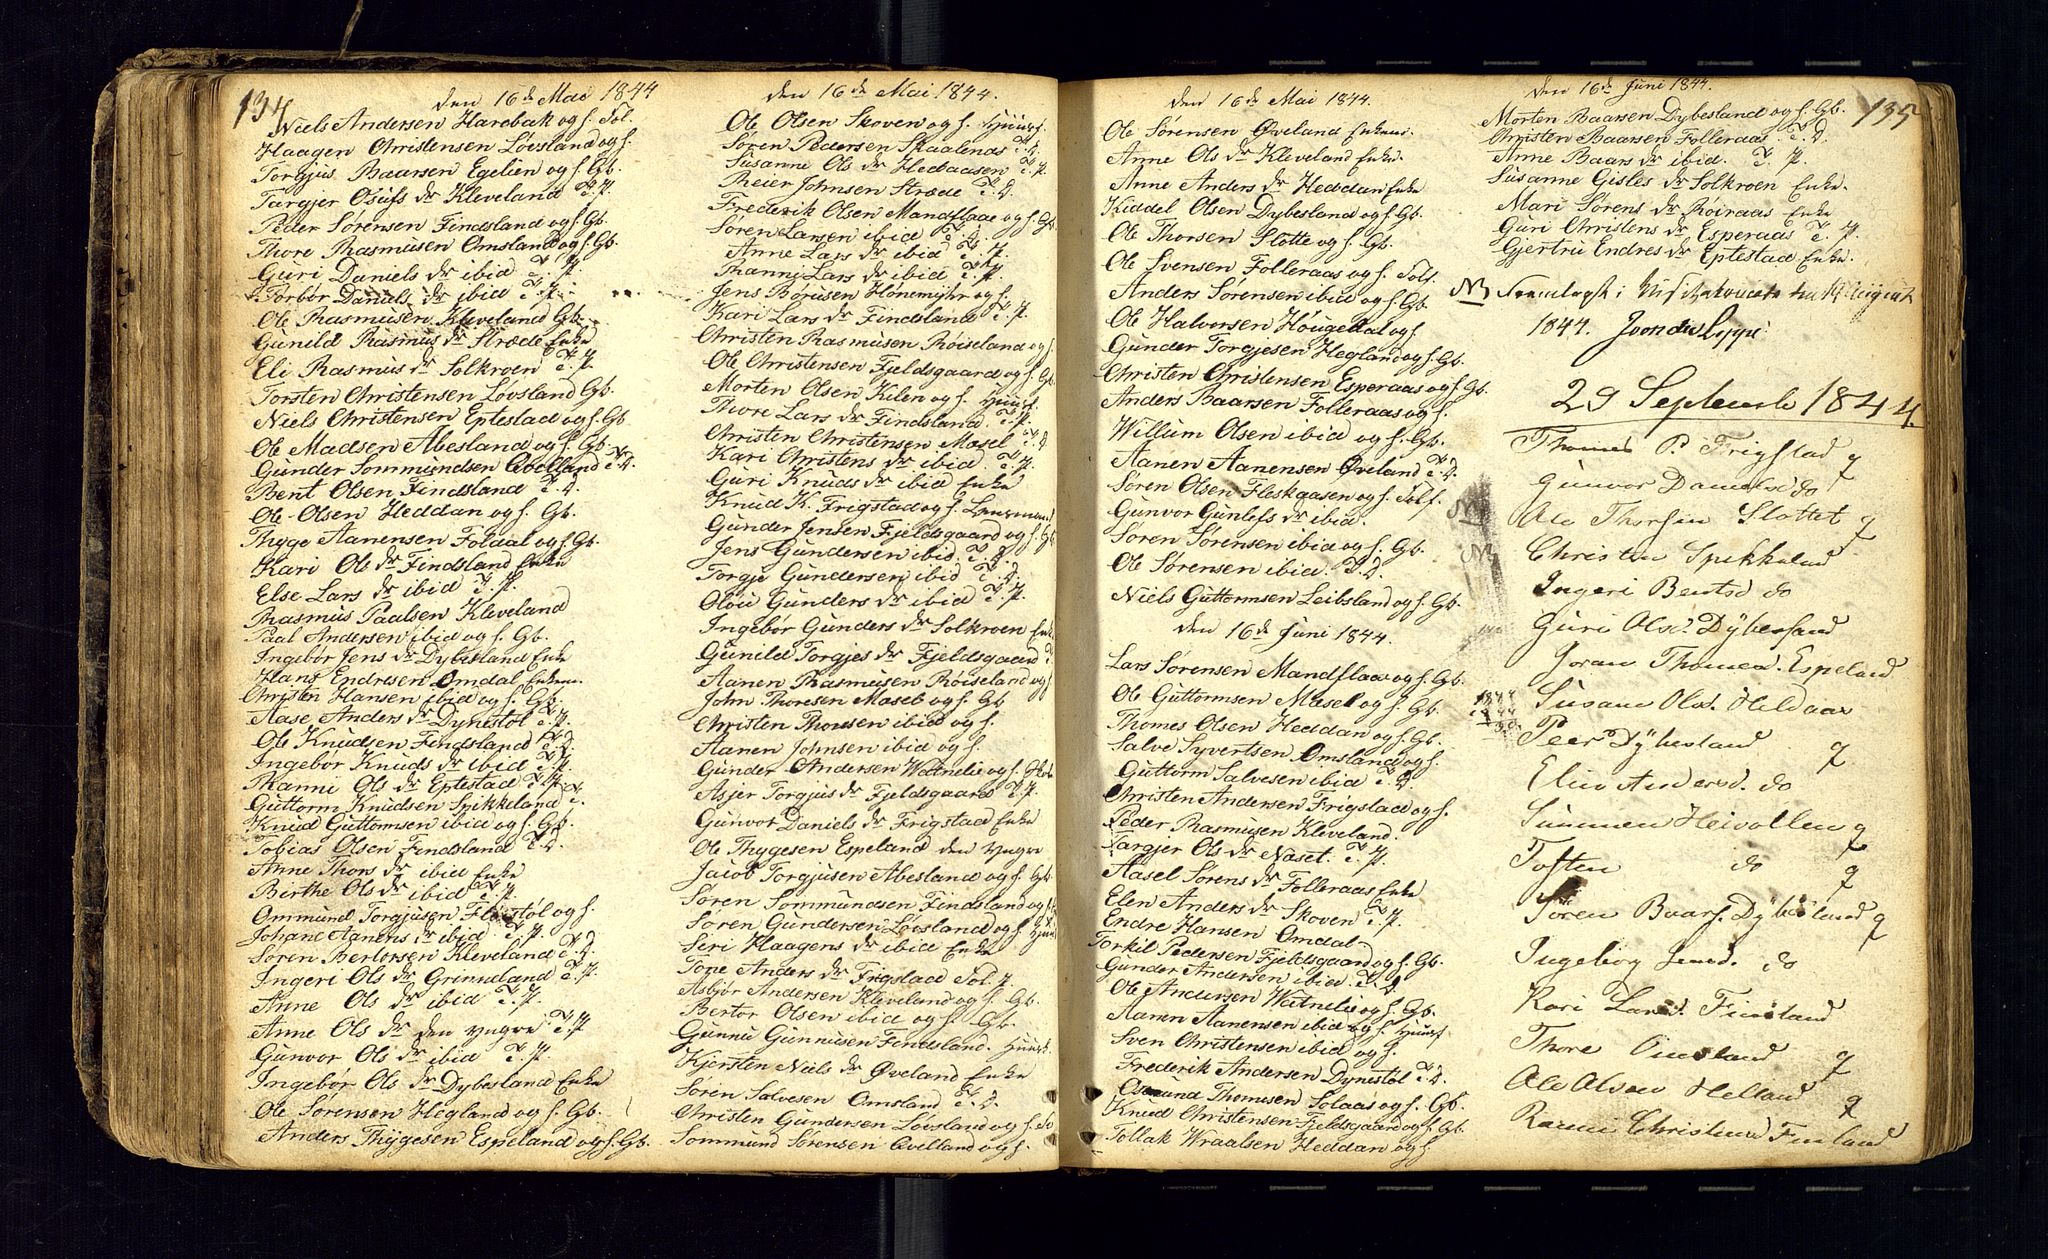 134
den 16de Mai 1844
Niels Andersen Harebak og h. Sol.
Haagen Christensen Løvsland og h.
Torgjus Baarsen Egelien og h. Gb.
Targjer Osufs dr Kleveland T. P.
Peder Sørensen Findsland og h. Gb.
Thore Rasmusen Omsland og h. Gb.
Guri Daniels dr ibid T. P.
Torbor Daniels dr ibid T. P.
Ole Rasmusen Kleveland Gb.
Gunild Rasmus dr Stræde Enke
Eli Rasmus dr Solkroen T. P.
Torsten Christensen Løvsland Gb.
Niels Christensen Eptestad og h. Gb.
Ole Madsen Abesland og h. Gb.
Gunder Sommundsen Qvelland T. D.
Bent Olsen Findsland T. D.
Ole Olsen Heddan og h. Gb.
Thyge Aanensen Foldal og h. Gb.
Kari Ols dr Findsland Enke
Else Lars dr ibid T. P.
Rasmus Paalsen Kleveland
Paal Andersen ibid og h. Gb.
Ingebor Jens dr Dybesland Enke
Hans Endresen Omdal Enkem.
Christen Hansen ibid og h. Gb.
Aase Anders dr Dynestøl T. P.
Ole Knudsen Findsland T. D.
Ingebor Knuds dr ibid T. P.
Ranni Ols dr Eptestad T. P.
Guttorm Knudsen Spikkeland T.
Knud Guttormsen ibid og h. Gb.
Tobias Olsen Findsland T. D.
Anne Thors dr ibid Enke
Birthe Ols dr ibid T. P.
Ommund Torgjusen Fløistøl og h.
Johane Aanens dr ibid T. P.
Søren Bertorsen Kleveland T. D.
Ingeri Ols dr Grinnland T. P.
Anne Ols dr ibid T. P.
Anne Ols dr den yngre T. P
Gunvor Ols dr ibid T. P.
Ingebor Ols dr Dybesland Enke
Ole Sørensen Hegland og h. Gb.
Anders Thygesen Espeland og h. Gb.
den 16de Mai 1844.
Ole Olsen Skoven og h. Huusf.
Søren Pedersen Skaalends T. D.
Susanne Ols dr Heddaasen T. P.
Reier Johnsen Stræde T. D.
Frederik Olsen Mandflaae og h. Gb.
Søren Larsen ibid T. D.
Anne Lars dr ibid T. P.
Ranni Lars dr ibid T. P.
Jens Børusen Hønemyhr og h.
Kari Lars dr Findsland T. P.
Christen Rasmusen Røiseland og h.
Ole Christensen Fjeldsgaard og h. Gb
Morten Olsen Kilen og h. Huusf.
Thore Lars dr Findsland. T. P.
Christen Christensen Møsel T. D
Kari Christens dr ibid T. P.
Guri Knuds dr ibid Enke
Knud K. Frigstad og h. Lensmand
Gunder Jensen Fjeldsgaard og h. Gb
Jens Gundersen ibid T. D.
Torgju Gundersen ibid T. D.
Olou Gunders dr ibid T. P.
Ingebor Gunders dr Solkroen Enke
Gunild Torgjes dr Fjeldsgaard T.
Aanen Rasmusen Røiseland og h
John Thoresen Møsel og h. Gb
Christen Thorsen ibid og h.
Aanen Johnsen ibid og h.
Gunder Andersen Watnelie og h.
Asjer Torgjus dr Fjeldsgaard T. P.
Gunvor Daniels dr Frigstad Enke
Ole Thygesen Espeland den yngre
Jacob Torgjusen Abesland og h. Gb.
Søren Sommundsen Findsland og h
Søren Gundersen Løvsland og h.
Siri Haagens dr ibid Enke
Tone Anders dr Frigstad Sol. P
Asbjør Andersen Kleveland og h. Gb.
Bertor Olsen ibid og h. Gb.
Gunnu Gunnusen Findsland. Huusf.
Kjersten Niels dr Øveland Enke
Søren Salvesen Omsland T. D.
Christen Gundersen Løvsland og h. So
Sommund Sørensen Qvelland og h.
den 16de Mai 1844.
Ole Sørensen Øveland Enkem.
Anne Ols dr Kleveland Enke.
Anne Anders dr Heddan Enke
Kiddel Olsen Dybesland og h. Gb.
Ole Thorsen Slotte og h. Gb.
Ole Svensen Folleraas og h. Solf.
Anders Sørensen ibid og h. Gb.
Ole Halvorsen Hougedal og h
Gunder Torgjesen Hegland og h. Gb.
Christen Christensen Esperaas og h. Gb.
Anders Baarsen Folleraas og h.
Willum Olsen ibid og h. Gb.
Aanen Aanensen Øveland T. D.
Søren Olsen Fleskaasen og h. Solf.
Gunvor Gunlefs dr ibid.
Søren Sørensen ibid og h. Gb.
Ole Sørensen ibid. T. D.
Niels Guttormsen Leibsland og h. Gb.
den 16de Juni 1844.
Lars Sørensen Mandflaa og h. Gb.
Ole Guttormsen Møsel og h. Gb.
Thomes Olsen Heddan og h. Gb.
Salve Syvertsen Omsland og h.
Guttorm Salvesen ibid T. D.
Christen Andersen Frigstad og h.
Peder Rasmusen Kleveland.
Targjer Ols dr Naset. T. P.
Aasel Sørens dr Folleraas Enke
Elen Anders dr Skoven T. P.
Endre Hansen Omdal
Torkil Pedersen Fjeldsgaard og h. Gb.
Gunder Andersen ibid. T. D
Ole Andersen Watnelie og h. Gb.
Aanen Aanensen ibid og h. Huusf.
Sven Christensen ibid og h.
Frederik Andersen Dynestøl T. D.
Osmund Thomesen Solaas og h. Gb.
Knud Christensen Fjeldsgaard og h. Gb.
Tollak Wraalsen Heddan og h
den 16de Juni 1844.
135
Morten Baarsen Dybesland og h. Gb.
Christen Baarsen Folleraas T. D.
Anne Baars dr ibid. T. P.
Susanne Gisles dr Solkroen Enke.
Mari Sørens dr Røiraas Enke
Guri Christens dr Esperaas T. P.
Gjertru Endres dr Eptestad Enke.
NB Fremlagt i Visitatsmøde August
1844.
29 Septembr 1844.
Thomes P. Frigstad q
Gunvor Danielsd do
Ole Thorsen Slottet q
Christen Spikkeland
Ingeri Bentsd do
Guri Olsd. Dybesland
Joran Thomesd. Espeland
1844
Susane Olsd. Heddaas
Peer Dybesland q
Elen Andersd. do
Summen Heivollen q
Tosten do q
Søren Baars. Dybesland q
Ingeborg Jensd. do
Kari Larsd. Finsland
Thore Omsland q
Ole Olsen Helland q
Ranni Christensd Finland